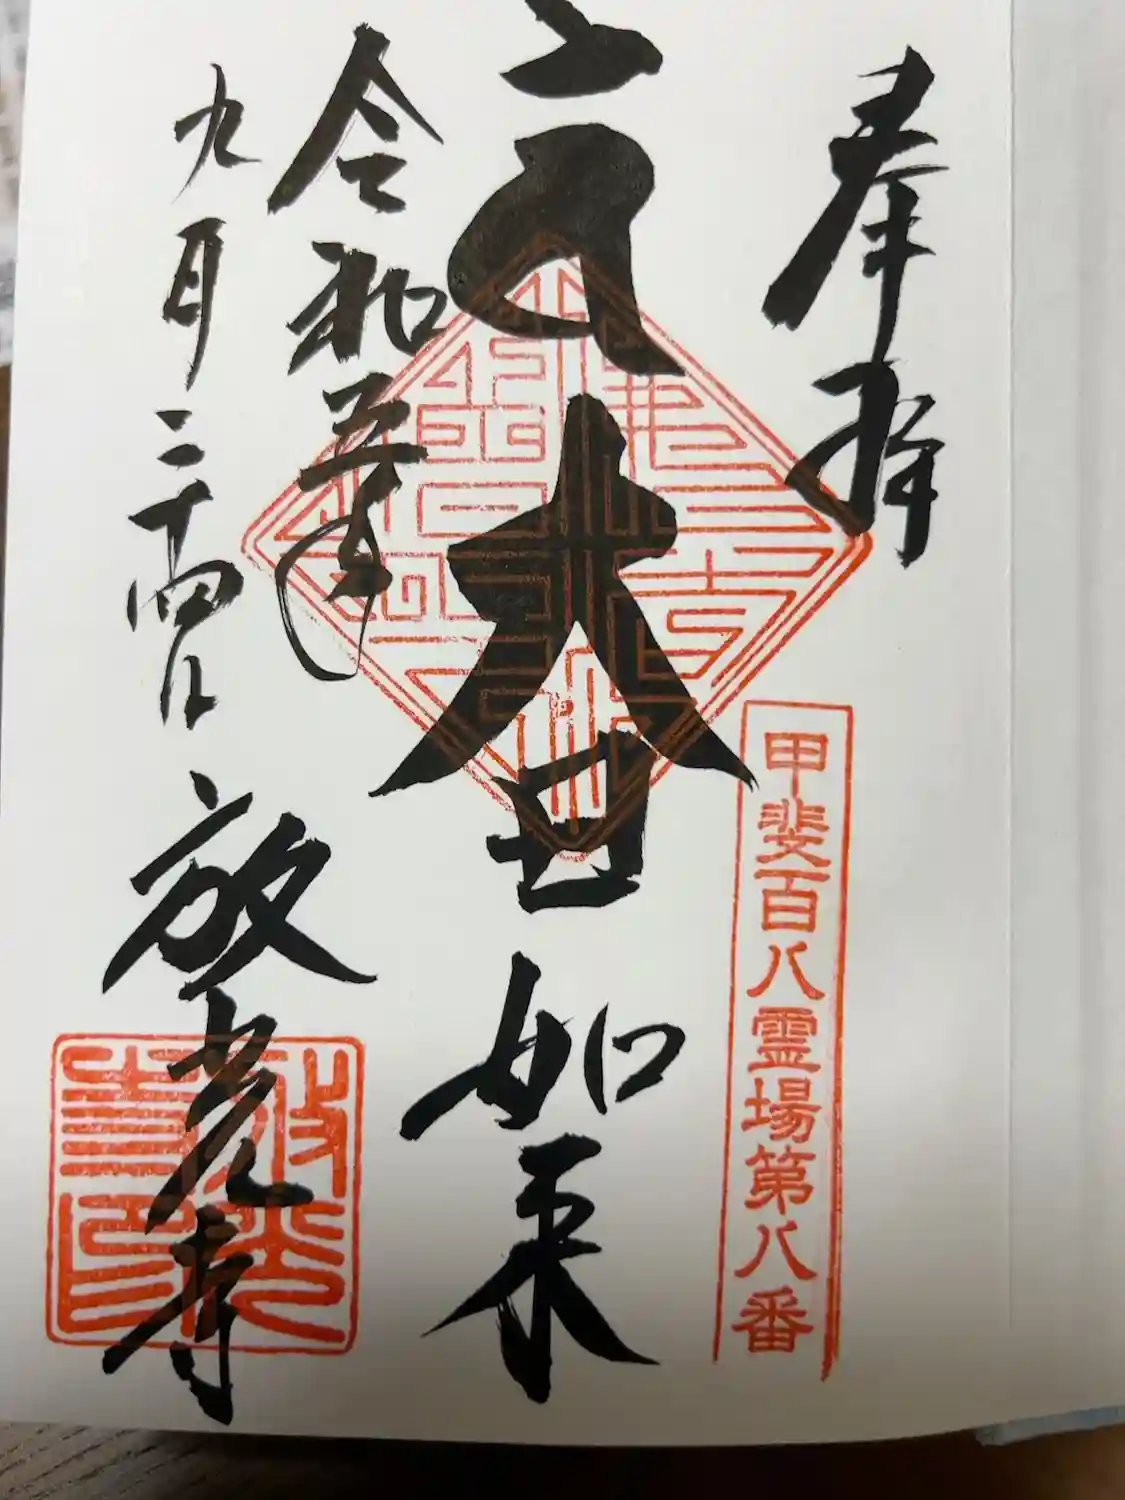 奉拝
甲斐百八霊場第八番
大日如来
令和五年
九月二十四日 放光寺
放光寺印